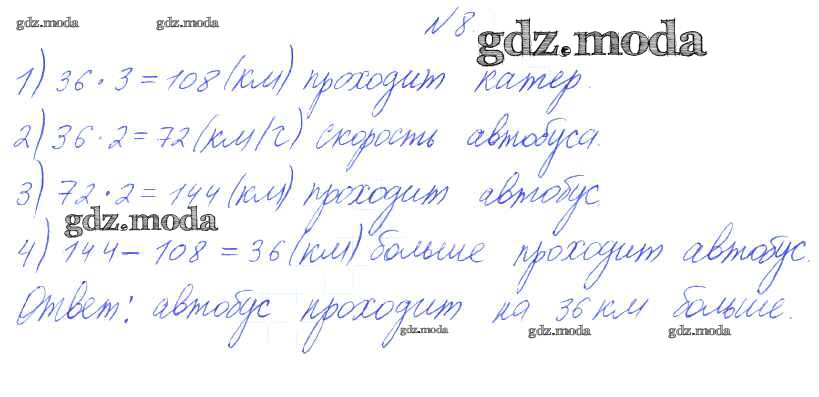 gdz.moda gdz.moda № 8.
gdz.moda
1) 36 · 3 = 108 (км) проходит катер.
2) 36 · 2 = 72 (км/ч) скорость автобуса.
3) 72 · 2 = 144 (км) проходит автобус
gdz.moda
4) 144 - 108 = 36 (км) больше проходит автобус.
Ответ: автобус проходит на 36 км больше.
gdz.moda gdz.moda gdz.moda